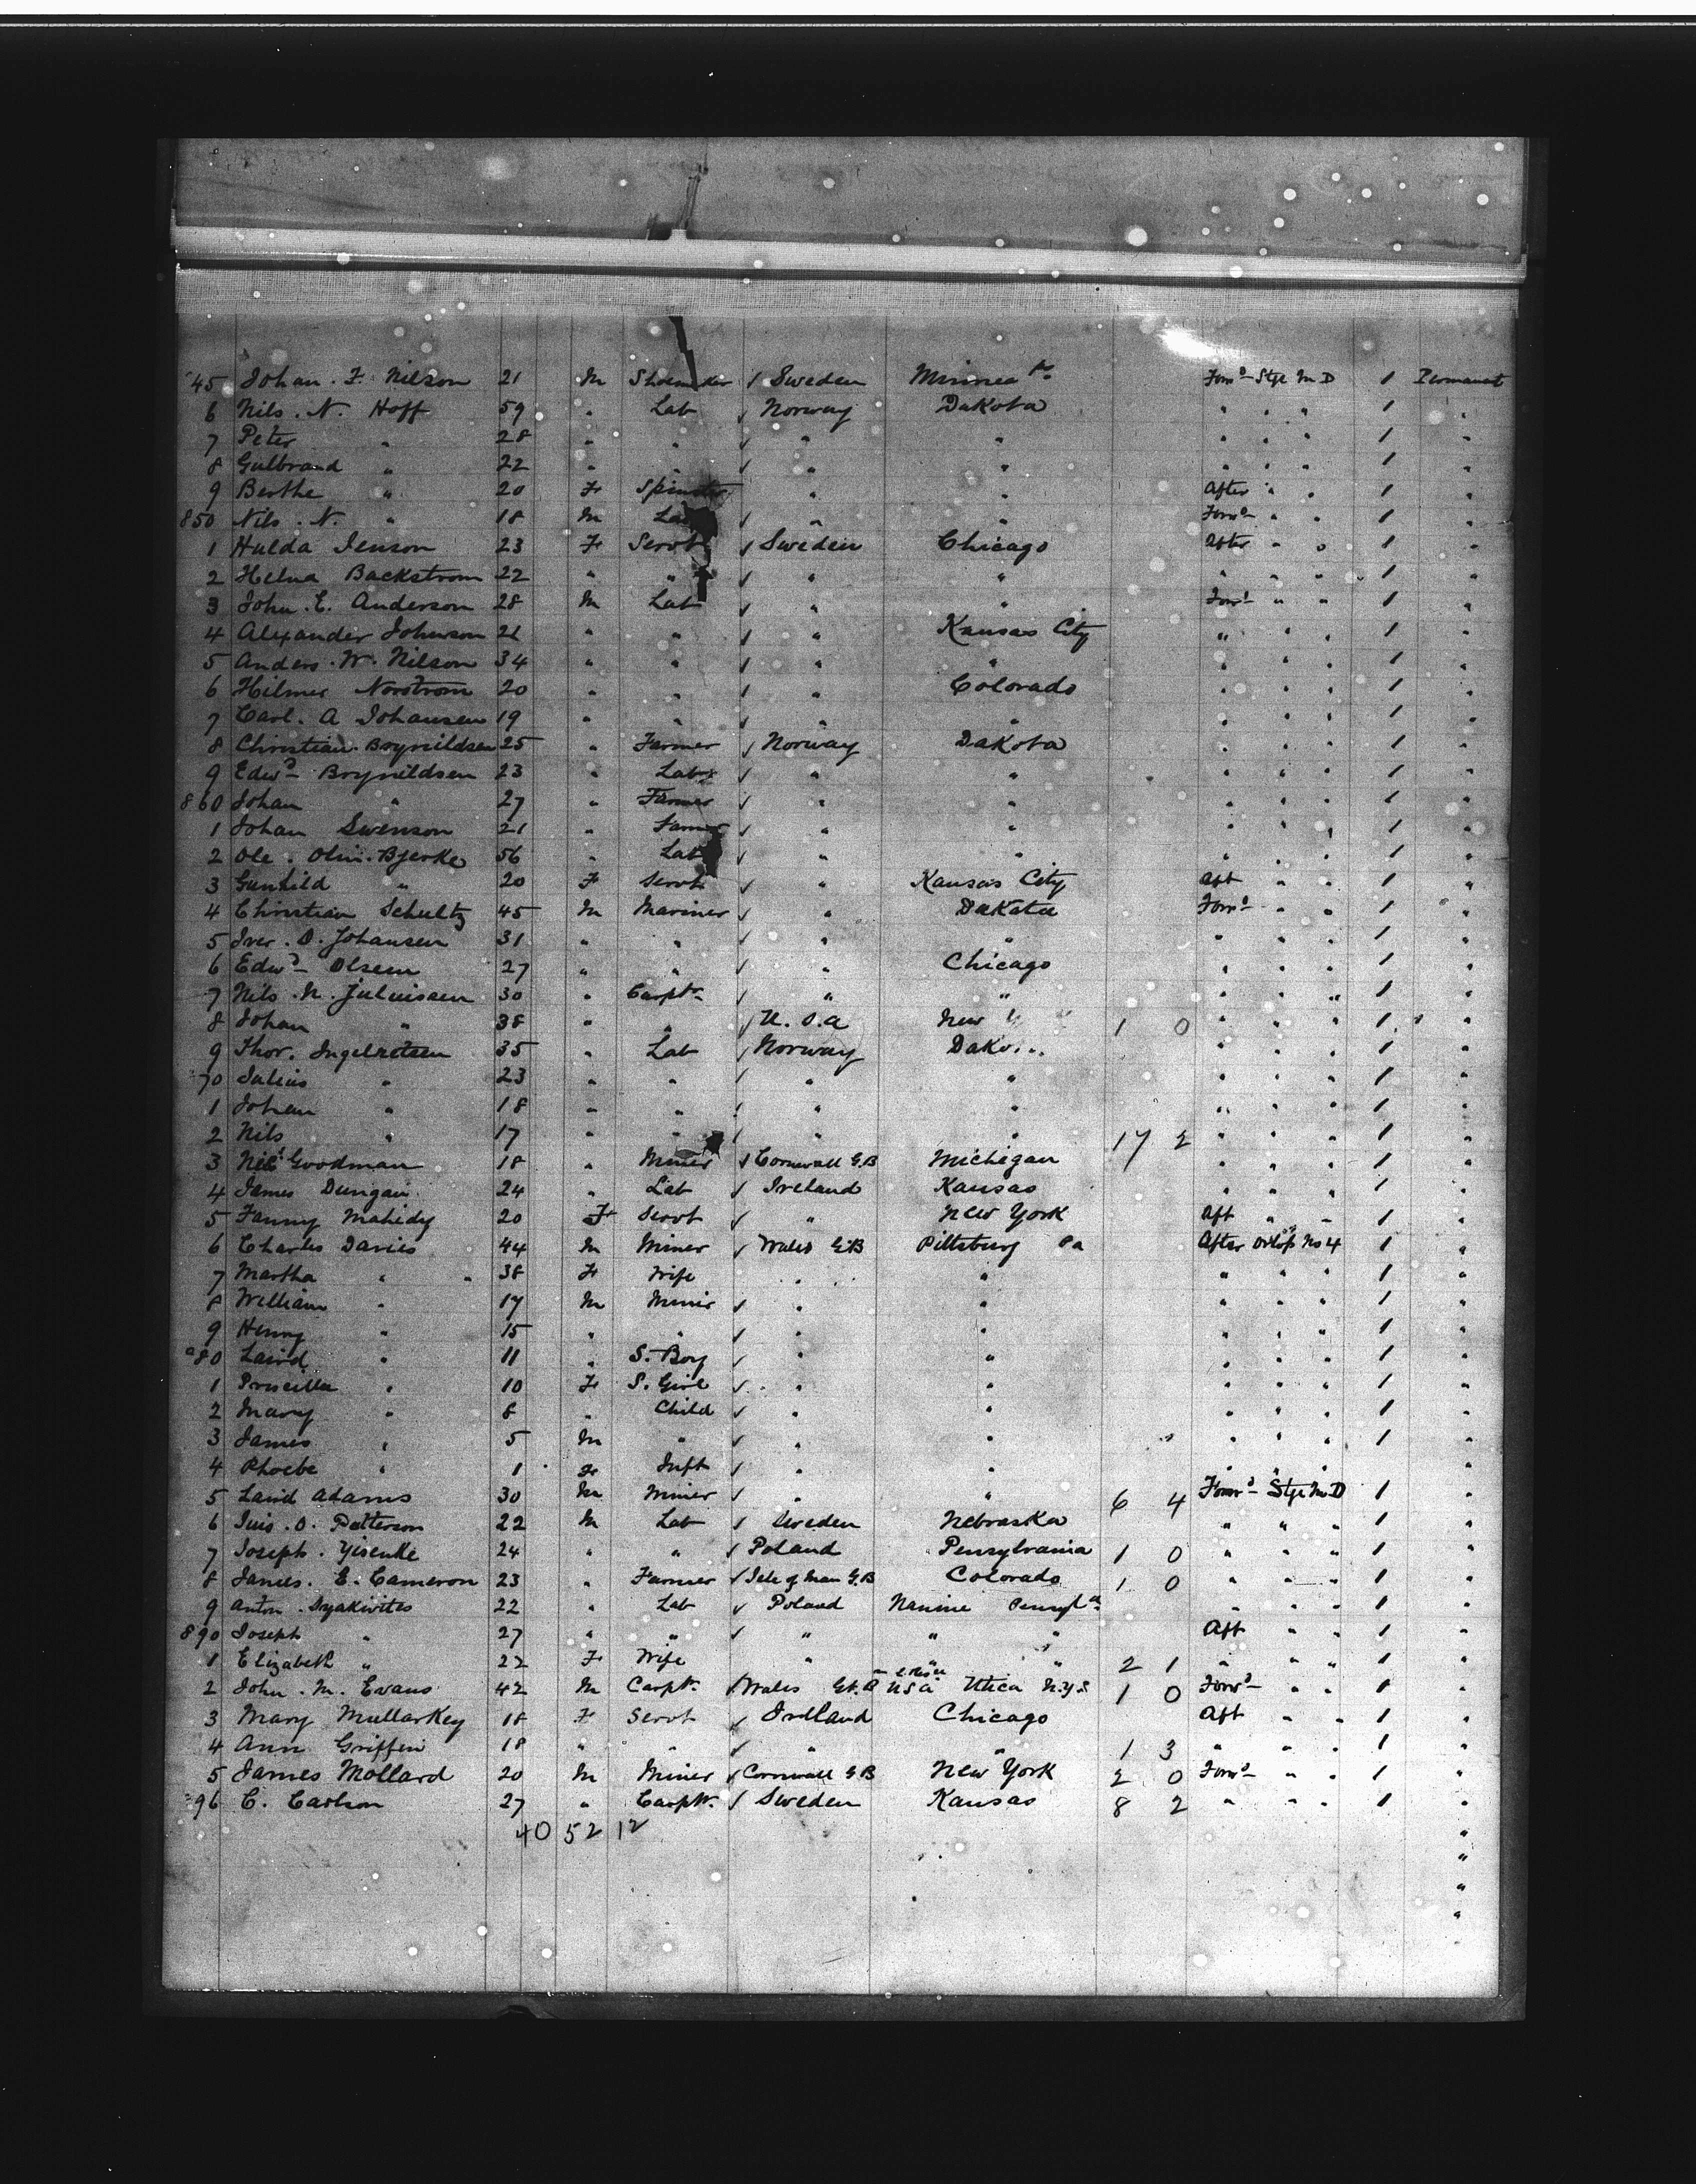 845 Johan. F. Nilson 21 M Shoemaker / Sweden Minnea Forwd Stge M D 1 Permanent
6 Nils. N. Hoff 59 " Lab / Norway Dakota " " " 1 "
7 Peter " 28 " " / " " " " " 1 "
8 Gulbrand " 22 " " / " " " " " 1 "
9 Berthe " 20 F Spinster " " After " " 1 "
850 Nils. N. " 18 M Lab / " " Forwd " " 1 "
1 Hulda Jenson 23 F Servt / Sweden Chicago After " " 1 "
2 Helna Backstrom 22 " " / " " " " " 1 "
3 John. E. Anderson 28 M Lab / " " Forwd " " 1 "
4 Alexander Johnson 21 " " / " Kansas City " " " 1 "
5 Anders. W. Nilson 34 " " / " " " " " 1 "
6 Hilmer Norstrom 20 " " / " Colorado " " " 1 "
7 Carl. A Johansen 19 " " / " " " " " 1 "
8 Christian. Brynildsen 25 " Farmer / Norway Dakota " " " 1 "
9 Edwd Brynildsen 23 " Lab / " " " " " 1 "
860 Johan " 27 " Farmer / " " " " " 1 "
1 Johan Swenson 21 " Farmer / " " " " " 1 "
2 Ole. Olin. Bjerke 56 " Lab / " " " " " 1 "
3 Gunhild " 20 F Servt / " Kansas City Aft " " 1 "
4 Christian Schultz 45 M Mariner / " Dakota Forwd " " 1 "
5 Iver. O. Johansen 31 " " / " " " " " 1 "
6 Edwd Olsen 27 " " / " Chicago " " " 1 "
7 Nils. N. Juluisaen 30 " Carptr / " " " " " 1 "
8 Johan " 38 " " / U. S. A New 1 0 " " " 1 "
9 Thor. Ingelretsen 35 " Lab / Norway Dako " " " 1 "
70 Julius " 23 " " / " " " " " 1 "
1 Johan " 18 " " / " " " " " 1 "
2 Nils " 17 " " / " " 17 2 " " " 1 "
3 Goodman 18 " Miner / Cornwall G.B Michigan " " " 1 "
4 James Dungan 24 " Lab / Ireland Kansas " " " 1 "
5 Fanny Mahidy 20 F Servt / " New York Aft " " 1 "
6 Charles Davies 44 M Miner / Wales G.B Pittsburg Pa After Orlop No 4 1 "
7 Martha " " 38 F Wife " " " " " 1 "
8 William " 17 M Miner / " " " " " 1 "
9 Henry " 15 " " / " " " " " 1 "
80 Laird " 11 " S. Boy / " " " " " 1 "
1 Priscilla " 10 F S. Girl / " " " " " 1 "
2 Mary " 8 " Child / " " " " " 1 "
3 James " 5 M " / " " " " " 1 "
4 Phoebe " 1 F Inft / " " " " " "
5 Laird Adams 30 M Miner / " " 6 4 Forwd Stge M D 1 "
6 O. Petterson 22 M Lab / Sweden Nebraska " " " 1 "
7 Joseph. Yisenke 24 " " / Poland Pensylvania 1 0 " " " 1 "
8 James. E. Cameron 23 " Farmer / Isle of Man G.B Colorado 1 0 " " " 1 "
9 Anton. Syakivites 22 " Lab / Poland Nanine Pensyla " " " 1 "
890 Joseph " 27 " " / " " " Aft " " 1 "
1 Elizabeth " 22 F Wife " " " 2 1 " " " 1 "
2 John. M. Evans 42 M Carpt. / Wales Gt. B USA Utica N.Y.S 1 0 Forwd " " 1 "
3 Mary Mullarkey 18 F Servt / Ireland Chicago Aft " " 1 "
4 Ann Griffin 18 " " / " " 1 3 " " " 1 "
5 James Mollard 20 M Miner / Cornwall G B New York 2 0 Forwd " " 1 "
896 C. Carlson 27 " Carptr. / Sweden Kansas 8 2 " " " 1 "
40 52 12 "
"
"
"